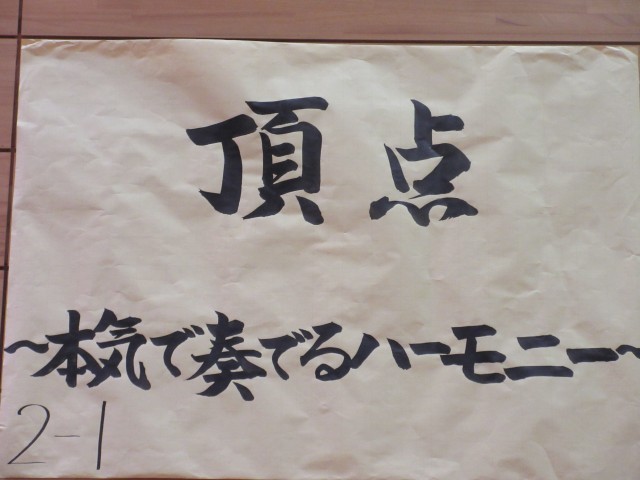 頂点
~本気で奏でるハーモニー~
2-1